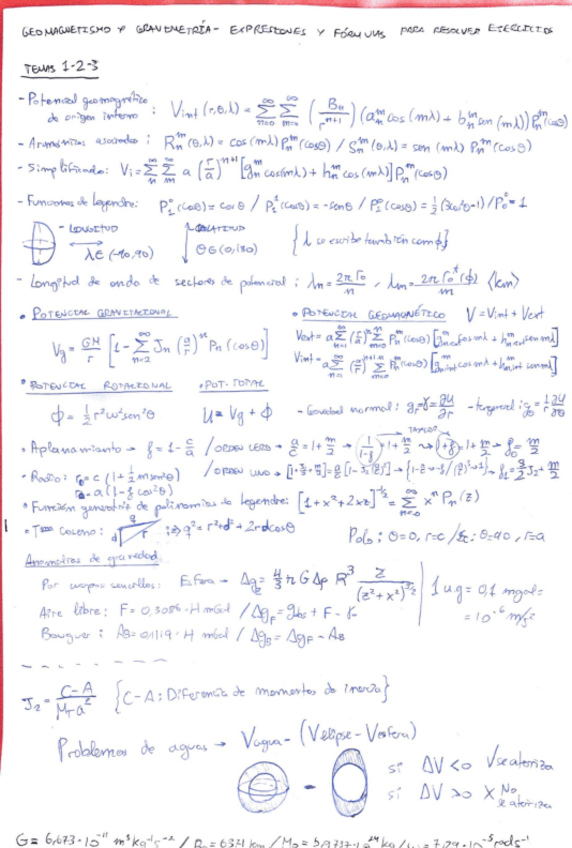 GEOMAGNETISMO Y GRAVIMETRÍA - EXPRESIONES Y FÓRMULAS PARA RESOLVER EJERCICIOS
TEMAS 1-2-3
- Potencial geomagnético de origen interno : V_int (r,θ,λ) = Σ_{n=0}^∞ Σ_{m=0}^∞ (B_n / r^{n+1}) (a_n^m cos (mλ) + b_n^m sen (mλ)) P_n^m (cosθ)
- Armónicos asociados : R_n^m (θ,λ) = cos (mλ) P_n^m (cosθ) / S_n^m (θ,λ) = sen (mλ) P_n^m (cosθ)
- Simplificado: V_i = Σ_n^∞ Σ_m^∞ a (r/a)^{n+1} [g_n^m cos(mλ) + h_n^m cos(mλ)] P_n^m (cosθ)
- Funciones de legendre: P_1^0 (cosθ) = cosθ / P_1^1 (cosθ) = -senθ / P_2^0 (cosθ) = 1/2 (3cos²θ-1) / P_0^0 = 1
- LONGITUD λ∈(-90,90) - COLATITUD θ∈(0,180) {λ se escribe también como ϕ}
- Longitud de onda de sectores de potencial : λ_n = 2πr_0 / n , λ_m = 2πr_0 (ϕ) / m (km)
• POTENCIAL GRAVITACIONAL
V_g = GM/r [1 - Σ_{n=2}^∞ J_n (a/r)^n P_n (cosθ)]
• POTENCIAL GEOMAGNÉTICO V = V_int + V_ext
V_ext = a Σ_{n=1}^∞ (r/a)^n Σ_{m=0}^n P_n^m (cosθ) [g_{n,ext}^m cos mλ + h_{n,ext}^m sen mλ]
V_int = a Σ_{n=1}^∞ (a/r)^{n+1} Σ_{m=0}^n P_n^m (cosθ) [g_{n,int}^m cos mλ + h_{n,int}^m sen mλ]
• POTENCIAL ROTACIONAL • POT. TOTAL
Φ = 1/2 r²ω² sen²θ U = V_g + Φ - Gravedad normal: g_r = γ = ∂U/∂r - tangencial : g_θ = 1/r ∂U/∂θ
• Aplanamiento → f = 1 - c/a / ORDEN CERO → a/c = 1 + m/2 → 1/(1-f) = 1 + m/2 → TAYLOR (1+f) = 1 + m/2 → f_0 = m/2
/ ORDEN UNO → f_1 = 3/2 J_2 + m/2
• Radio: r_0 = c (1 + 1/2 m sen²θ)
r_0 = a (1 - f cos²θ)
• Función generatriz de polinomios de legendre: [1 + x² + 2xz]^{-1/2} = Σ_{n=0}^∞ x^n P_n (z)
• Coseno: q d r ⇒ q² = r² + d² + 2rd cosθ Polo : θ=0, r=c / Ec : θ=90, r=a
Anomalías de gravedad
Por cuerpos sencillos: Esfera → Δg_z = 4/3 π G Δρ R³ z / (z² + x²)^{3/2} | 1 u.g = 0,1 mgal = 10^{-6} m/s²
Aire libre: F = 0,3086 · H mGal / Δg_F = g_obs + F - γ
Bouguer : A_B = 0,1119 · H mGal / Δg_B = Δg_F - A_B
J_2 = (C-A) / (M_T a²) {C-A : Diferencia de momentos de inercia}
Problemas de aguas → V_agua - (V_elipse - V_esfera)
si ΔV < 0 √ se aterriza
si ΔV > 0 X No se aterriza